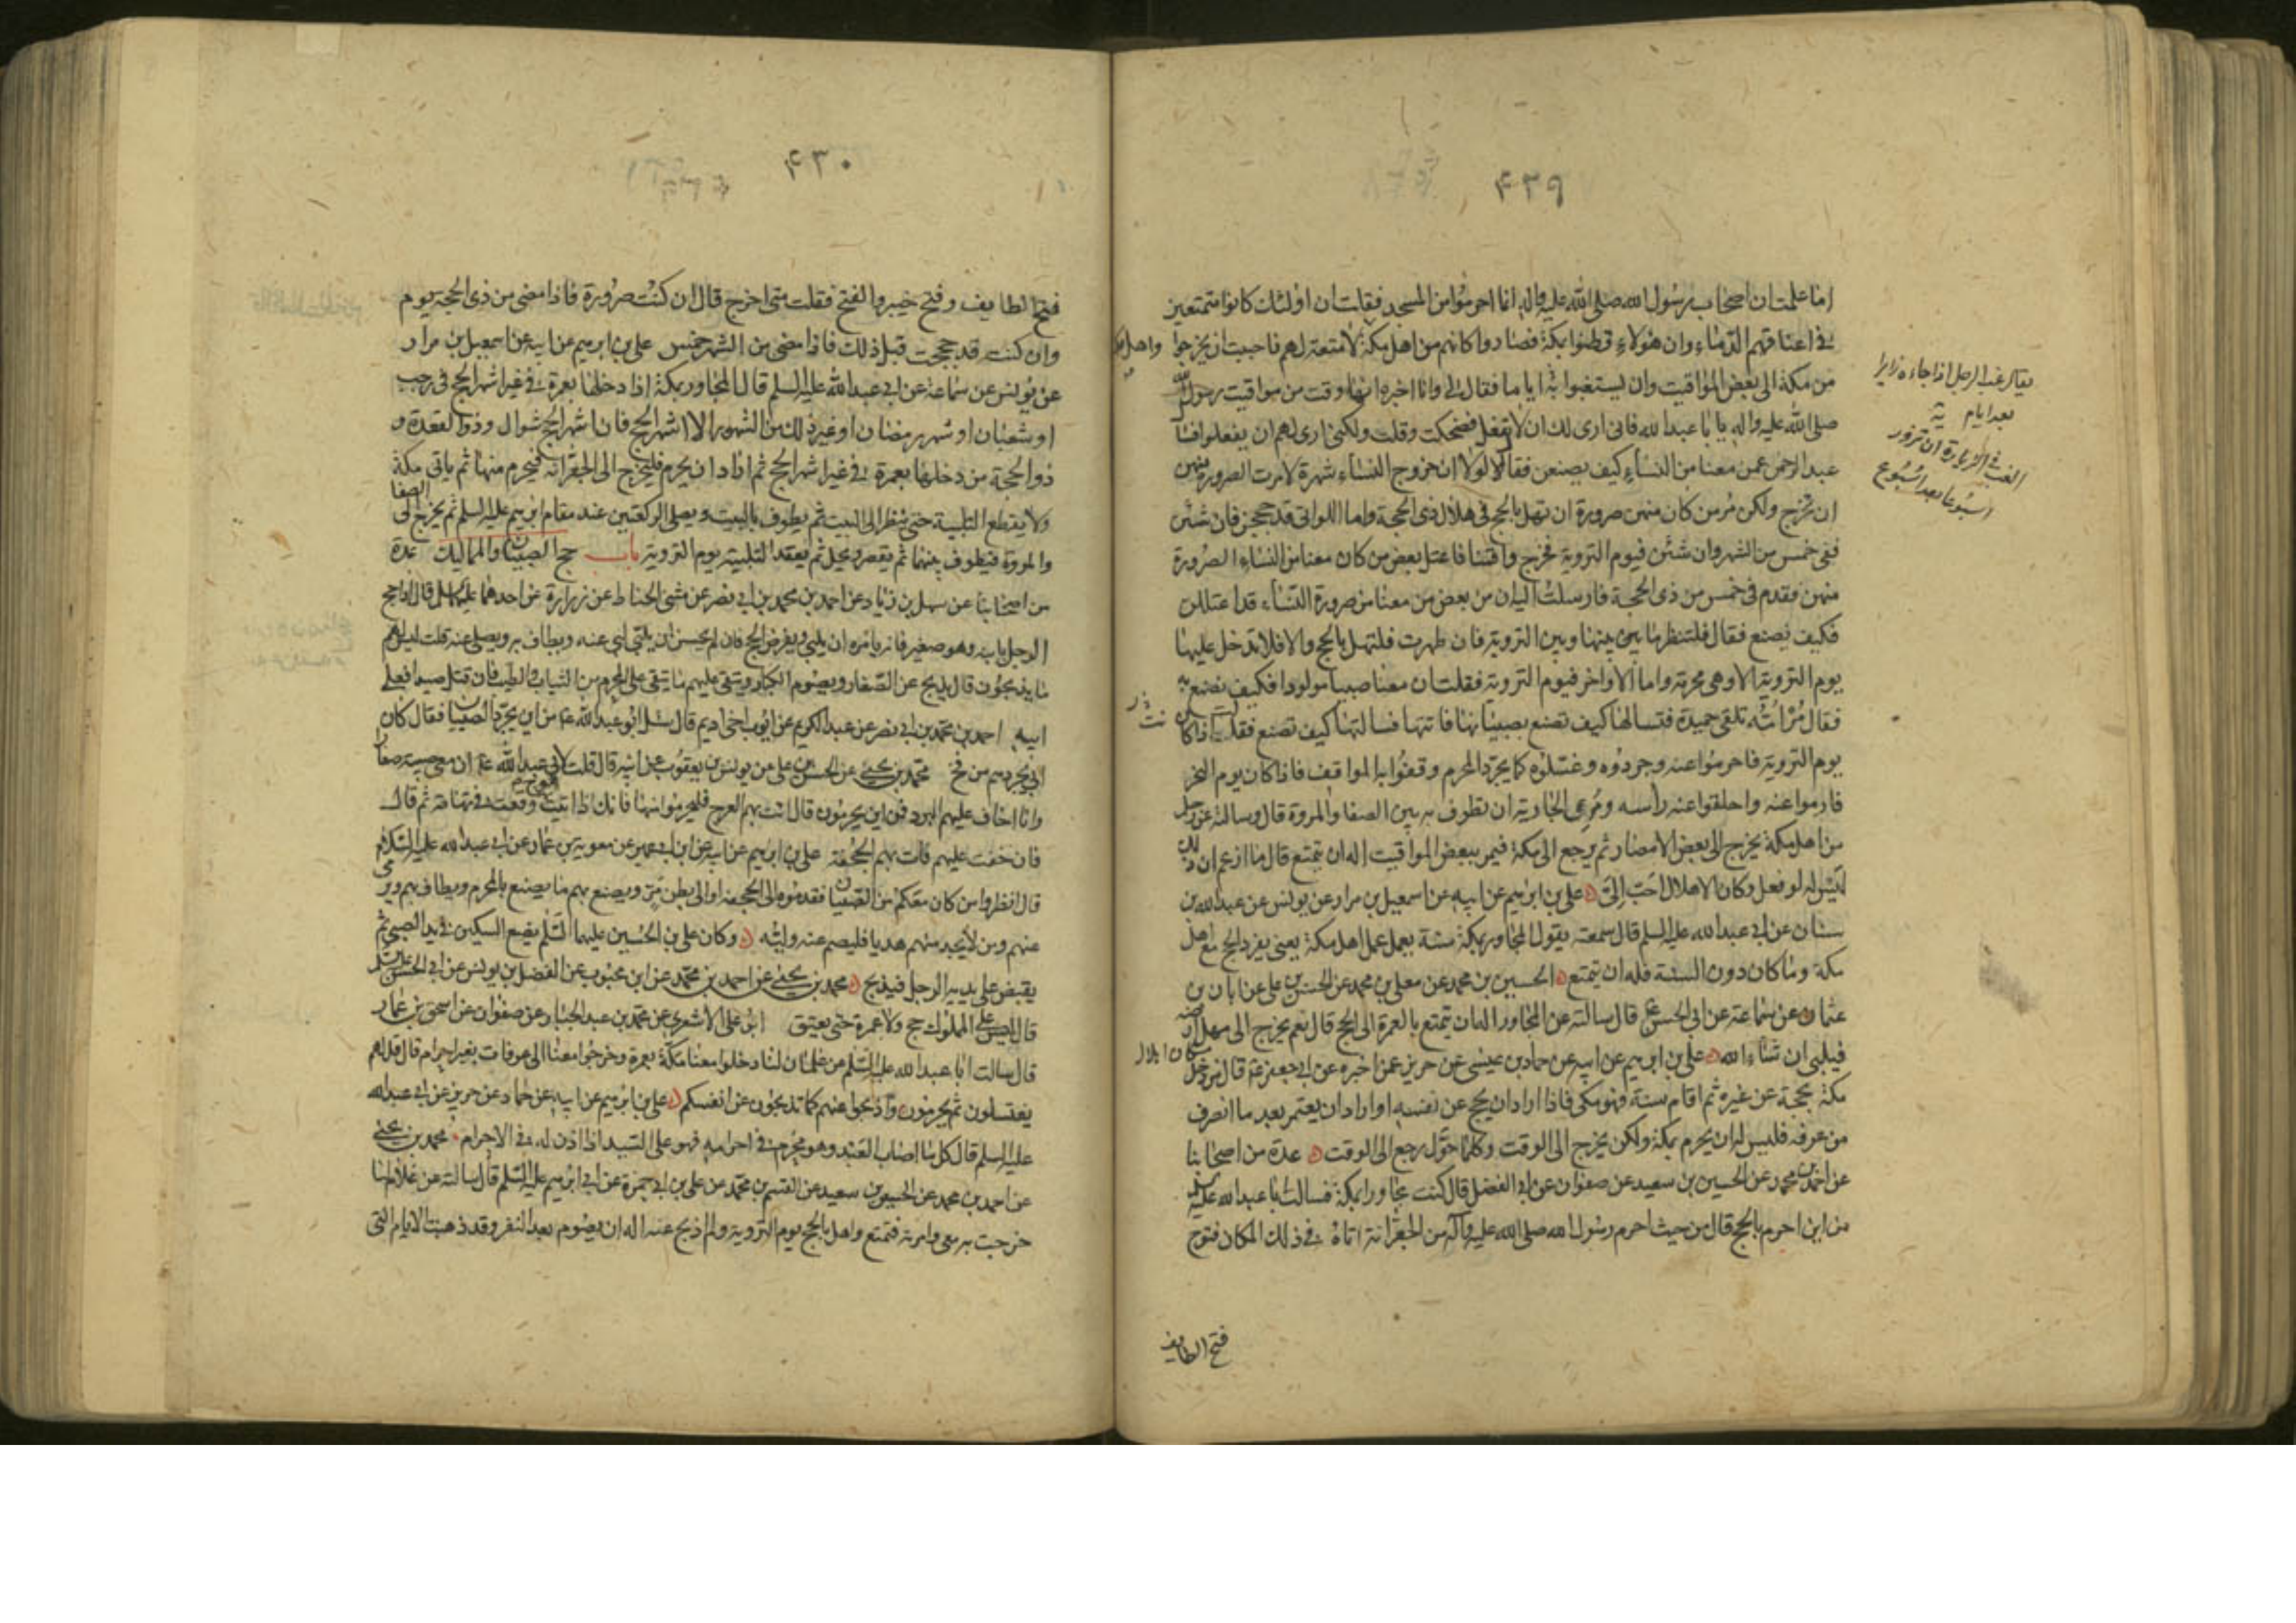 ۴۲۹
اما علمت ان اصحاب رسول الله صلى الله عليه واله انما احرموا من المسجد فقلت ان اولئك كانوا متمتعين
في اعناقهم الدماء وان هؤلاء قطنوا بمكة فصاروا كانهم من اهل مكة واهل مكة لا متعة لهم فاحببت ان يخرجوا
من مكة الى بعض المواقيت وان يستغبوا به اياما فقال لي وانا اخبره انها وقت من مواقيت رسول الله
صلى الله عليه واله يا با عبد الله فانى ارى لك ان لا تفعل فضحكت وقلت ولكنى ارى لهم ان يفعلوا فسأل
عبد الرحمن عمن معنا من النساء كيف يصنعن فقال لولا ان خروج النساء شهرة لامرت الصرورة منهن
ان تخرج ولكن مر من كان منهن صرورة ان تهل بالحج فى هلال ذى الحجة واما اللواتى قد حججن فان شئن
ففى خمس من الشهر وان شئن فيوم التروية فخرج واقمنا فاعتل بعض من كان معنا من النساء الصرورة
منهن فقدم فى خمس من ذى الحجة فارسلت اليه ان بعض من معنا من صرورة النساء قد اعتللن
فكيف تصنع فقال فلتنظر ما بينها وبين التروية فان طهرت فلتهل بالحج والا فلا تدخل عليها
يوم التروية الا وهى محرمة واما الاواخر فيوم التروية فقلت ان معنا صبيا مولودا فكيف نصنع به
فقال مر امه تلقى حميدة فتسالها كيف تصنع بصبيانها فاتتها فسالتها كيف تصنع فقالت اذا كان
يوم التروية فاحرموا عنه وجردوه وغسلوه كما يجرد المحرم وقفوا به المواقف فاذا كان يوم النحر
فارموا عنه واحلقوا عنه راسه ومرى الجارية ان تطوف به بين الصفا والمروة قال وسالته عن رجل
من اهل مكة يخرج الى بعض الامصار ثم يرجع الى مكة فيمر ببعض المواقيت اله ان يتمتع قال ما ازعم ان ذلك
ليس له لو فعل وكان الاهلال احب الى علي بن ابرهيم عن ابيه عن اسمعيل بن مرار عن يونس عن عبد الله بن
سنان عن ابى عبد الله عليه السلم قال سمعته يقول المجاور بمكة سنة يعمل عمل اهل مكة يعنى يفرد الحج مع اهل
مكة وما كان دون السنة فله ان يتمتع الحسين بن محمد عن معلى بن محمد عن الحسن بن على عن ابان بن
عثمان عن سماعة عن ابى الحسن ع قال سالته عن المجاور اله ان يتمتع بالعمرة الى الحج قال نعم يخرج الى مهل ارضه
فيلبى ان شاء الله على بن ابرهيم عن ابيه عن حماد بن عيسى عن حريز عمن اخبره عن ابى جعفر ع قال من دخل
مكة بحجة عن غيره ثم اقام سنة فهو مكى فاذا اراد ان يحج عن نفسه او اراد ان يعتمر بعد ما انصرف
من عرفة فليس له ان يحرم بمكة ولكن يخرج الى الوقت وكلما حول رجع الى الوقت عدة من اصحابنا
عن احمد بن محمد عن الحسين بن سعيد عن صفوان عن ابى الفضل قال كنت مجاورا بمكة فسالت ابا عبد الله عليه السلم
من اين احرم بالحج قال من حيث احرم رسول الله صلى الله عليه وآله من الجعرانة اتاه فى ذلك المكان فتوح
فتح الطايف
يقال غب الرجل اذا جاء زايرا
بعد ايام
الغب فى الزيارة ان تزور
اسبوعا بعد اسبوع
۴۳۰
فتح الطايف وفتح خيبر والفتح فقلت متى اخرج قال ان كنت صرورة فاذا مضى من ذى الحجة يوم
وان كنت قد حججت قبل ذلك فاذا مضى من الشهر خمس على بن ابرهيم عن ابيه عن اسمعيل بن مرار
عن يونس عن سماعة عن ابى عبد الله عليه السلم قال المجاور بمكة اذا دخلها بعمرة فى غير اشهر الحج فى رجب
او شعبان او شهر رمضان او غير ذلك من الشهور الا اشهر الحج فان اشهر الحج شوال وذوا لقعدة و
ذوالحجة من دخلها بعمرة فى غير اشهر الحج ثم اراد ان يحرم فليخرج الى الجعرانة فيحرم منها ثم ياتى مكة
ولا يقطع التلبية حتى ينظر الى البيت ثم يطوف بالبيت ويصلى الركعتين عند مقام ابرهيم عليه السلم ثم يخرج الى الصفا
والمروة فيطوف بينهما ثم يقصر ويحل ثم يعقد التلبية يوم التروية باب حج الصبيان والمماليك عدة
من اصحابنا عن سهل بن زياد عن احمد بن محمد بن ابى نصر عن مثنى الحناط عن زرارة عن احدهما عليهما السلم قال اذا حج
الرجل بابنه وهو صغير فانه يامره ان يلبى ويفرض الحج فان لم يحسن ان يلبى لبى عنه ويطاف به ويصلى عنه قلت ليس لهم
ما يذبحون قال يذبح عن الصغار ويصوم الكبار ويتقى عليهم ما يتقى على المحرم من الثياب والطيب فان قتل صيدا فعلى
ابيه احمد بن محمد بن ابى نصر عن عبد الكريم عن ايوب اخى اديم قال سئل ابو عبد الله ع من اين يجرد الصبيان فقال كان
ابى يجردهم من فخ محمد بن يحيى عن الحسن بن على عن يونس بن يعقوب عن ابيه قال قلت لابى عبد الله ع ان معى صبية صغارا
وانا اخاف عليهم البرد فمن اين يحرمون قال ائت بهم العرج فليحرموا منها فانك اذا اتيت العرج وقعت فى تهامة ثم قال
فان خفت عليهم فات بهم الجحفة على بن ابرهيم عن ابيه عن ابن ابى عمير عن معوية بن عمار عن ابى عبد الله عليه السلام
قال انظروا من كان معكم من الصبيان فقدموه الى الجحفة او الى بطن مر ويصنع بهم ما يصنع بالمحرم ويطاف بهم ويرمى
عنهم ومن لا يجد منهم هديا فليصم عنه وليه وكان على بن الحسين عليهما السلم يضع السكين فى يد الصبى ثم
يقبض على يديه الرجل فيذبح محمد بن يحيى عن احمد بن محمد عن ابن محبوب عن الفضل بن يونس عن ابى الحسن عليه السلم
قال ليس على المملوك حج ولا عمرة حتى يعتق ابو على الاشعرى عن محمد بن عبد الجبار عن صفوان عن اسحق بن عمار
قال سالت ابا عبد الله عليه السلم عن غلمان لنا دخلوا معنا مكة بعمرة وخرجوا معنا الى عرفات بغير احرام قال قل لهم
يغتسلون ثم يحرمون واذبحوا عنهم كما تذبحون عن انفسكم على بن ابرهيم عن ابيه عن حماد عن حريز عن ابى عبد الله
عليه السلم قال كل ما اصاب العبد وهو محرم فى احرامه فهو على السيد اذا اذن له فى الاحرام محمد بن يحيى
عن احمد بن محمد عن الحسين بن سعيد عن القسم بن محمد عن على بن ابى حمزة عن ابى ابرهيم عليه السلم قال سالته عن غلام لنا
خرجت به معى وامرته فتمتع واهل بالحج يوم التروية ولم اذبح عنه اله ان يصوم بعد النفر وقد ذهبت الايام التى